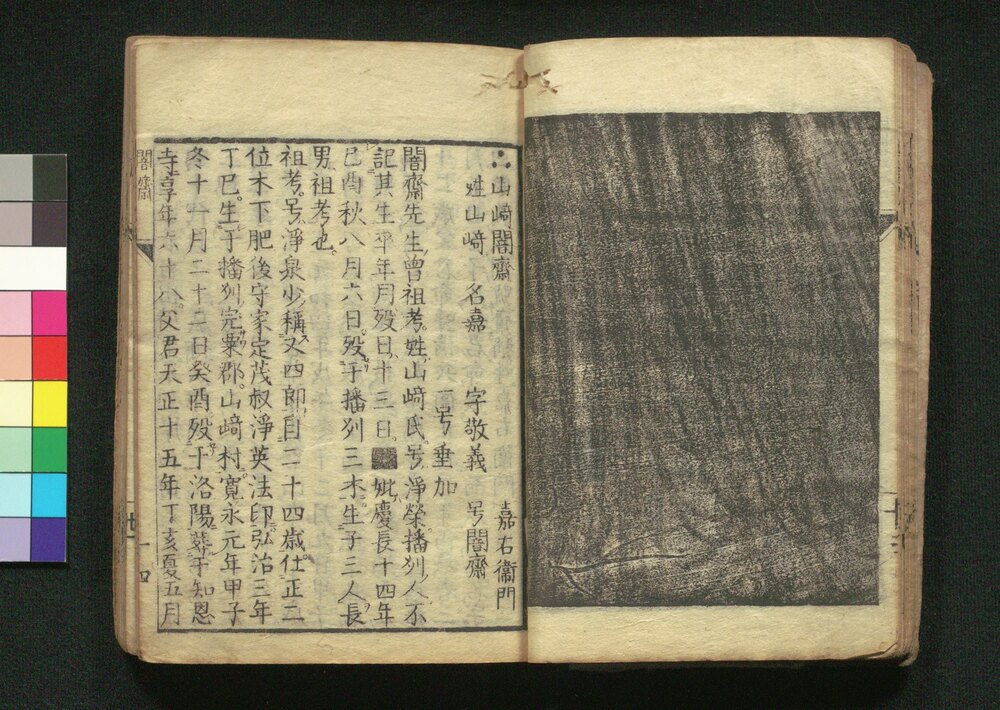 ∴山﨑闇齋 嘉右衞門
姓山﨑 名嘉 字敬義 号闇齋
一号垂加
闇齋先生曾祖考姓山﨑氏号淨榮播州人不
記其生卒年月歿日十三日 妣慶長十四年
己酉秋八月六日歿于播州三木生子三人長
男祖考也
祖考号淨泉少稱又四郎自二十四歳仕正二
位木下肥後守家定茂叔淨英法印弘治三年
丁巳生于播州完粟郡山﨑村寛永元年甲子
冬十一月二十二日癸酉歿于洛陽葬于知恩
寺享年六十八父君天正十五年丁亥夏五月
闇齋